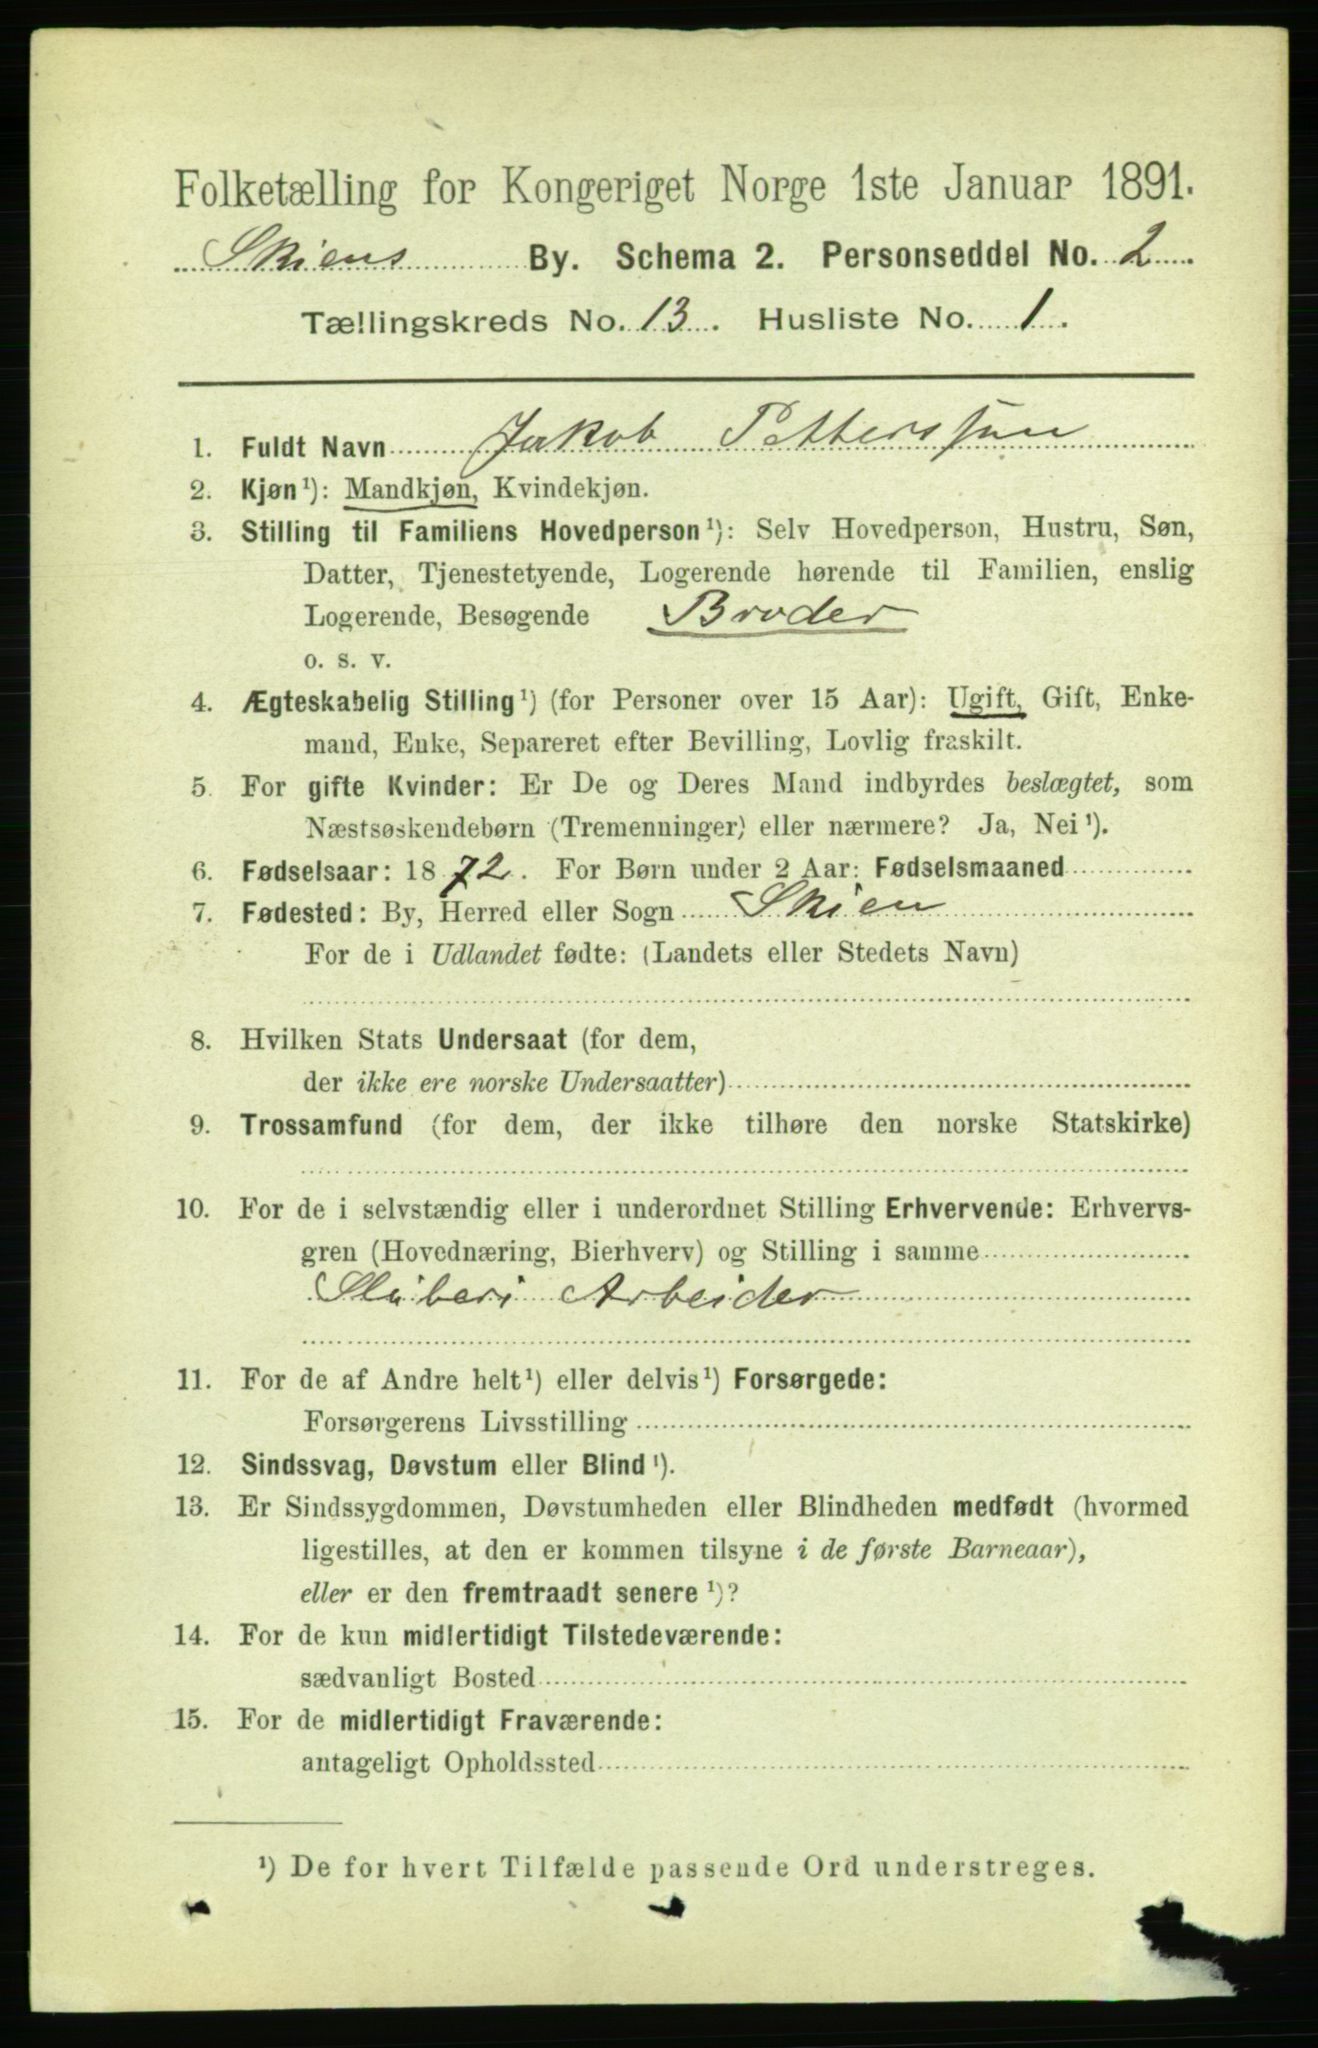 Folketælling for Kongeriget Norge 1ste Januar 1891.
Skiens By. Schema 2. Personseddel No. 2
Tællingskreds No. 13. Husliste No. 1.
1. Fuldt Navn Jakob Petterssøn
2. Kjøn¹): Mandkjøn, Kvindekjøn.
3. Stilling til Familiens Hovedperson¹): Selv Hovedperson, Hustru, Søn,
Datter, Tjenestetyende, Logerende hørende til Familien, enslig
Logerende, Besøgende Broder
o. s. v.
4. Ægteskabelig Stilling¹) (for Personer over 15 Aar): Ugift, Gift, Enke-
mand, Enke, Separeret efter Bevilling, Lovlig fraskilt.
5. For gifte Kvinder: Er De og Deres Mand indbyrdes beslægtet, som
Næstsøskendebørn (Tremenninger) eller nærmere? Ja, Nei¹).
6. Fødselsaar: 1872. For Børn under 2 Aar: Fødselsmaaned
7. Fødested: By, Herred eller Sogn Skien
For de i Udlandet fødte: (Landets eller Stedets Navn)
8. Hvilken Stats Undersaat (for dem,
der ikke ere norske Undersaatter)
9. Trossamfund (for dem, der ikke tilhøre den norske Statskirke)
10. For de i selvstændig eller i underordnet Stilling Erhvervende: Erhvervs-
gren (Hovednæring, Bierhverv) og Stilling i samme
Sliberi Arbeider
11. For de af Andre helt¹) eller delvis¹) Forsørgede:
Forsørgerens Livsstilling
12. Sindssvag, Døvstum eller Blind¹).
13. Er Sindssygdommen, Døvstumheden eller Blindheden medfødt (hvormed
ligestilles, at den er kommen tilsyne i de første Barneaar),
eller er den fremtraadt senere¹)?
14. For de kun midlertidigt Tilstedeværende:
sædvanligt Bosted
15. For de midlertidigt Fraværende:
antageligt Opholdssted
¹) De for hvert Tilfælde passende Ord understreges.